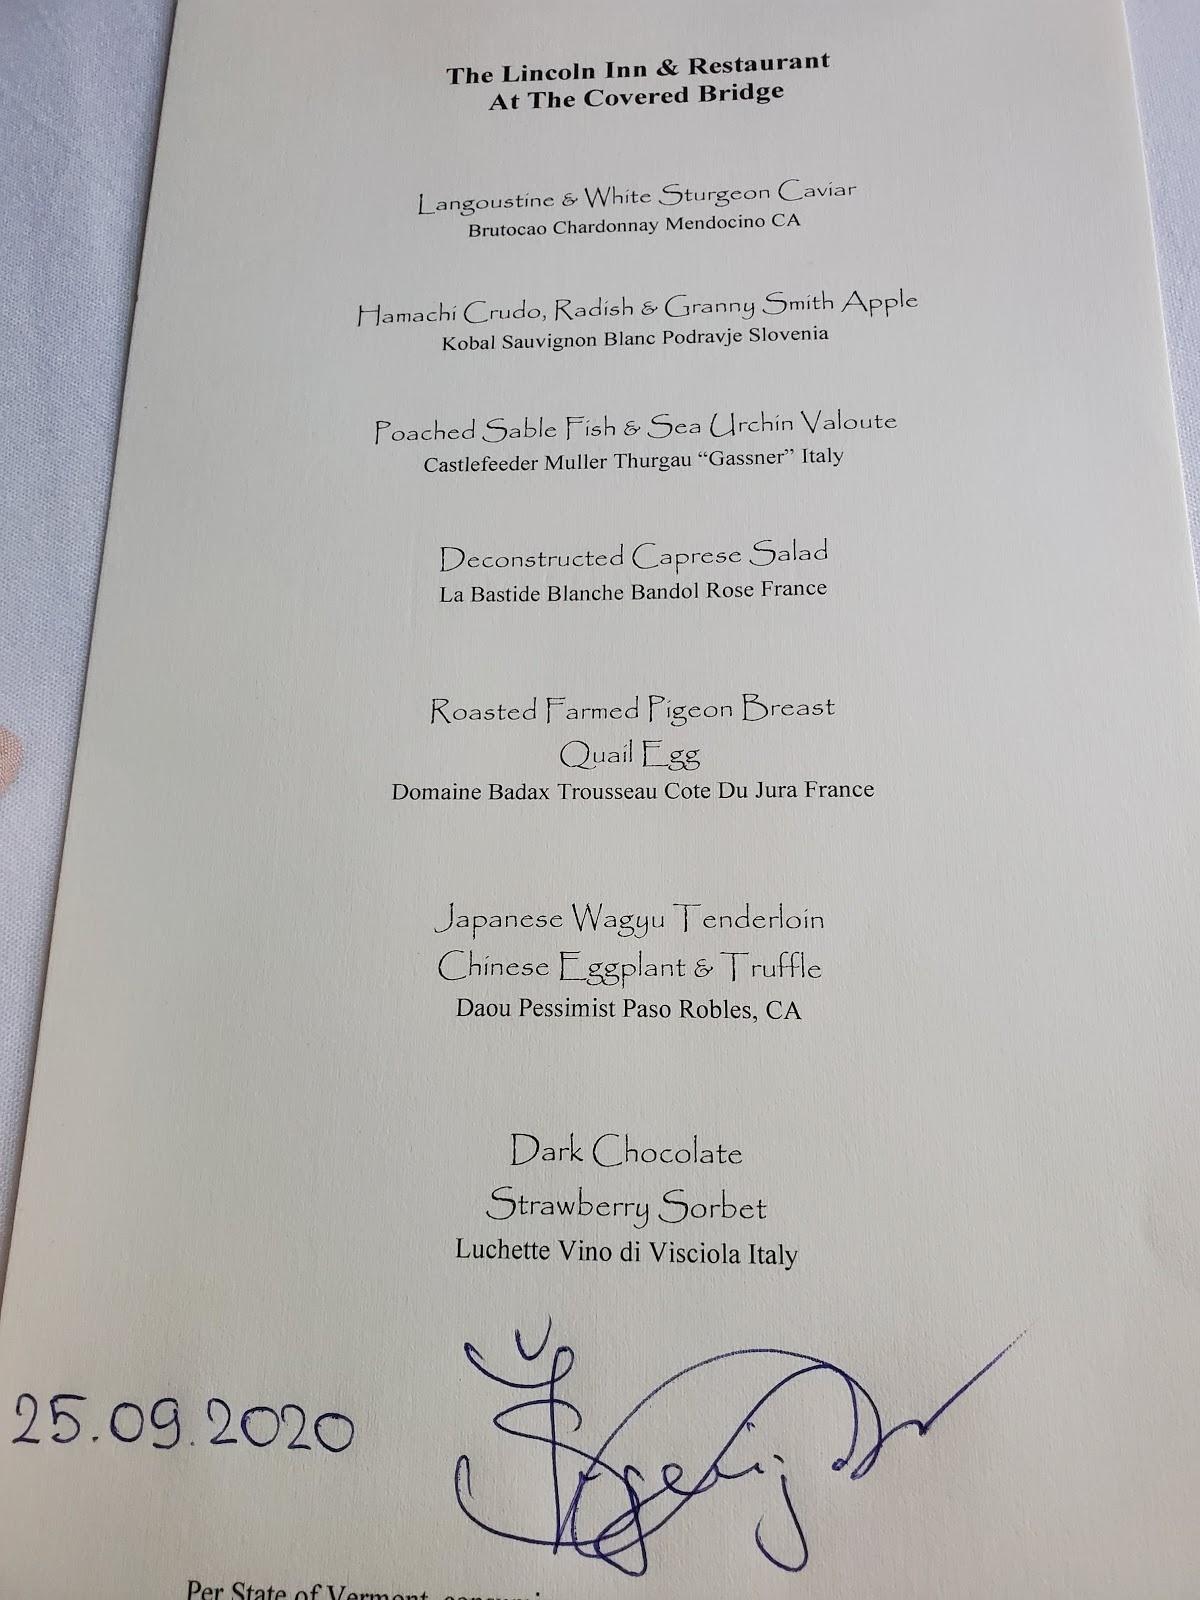 The Lincoln Inn & Restaurant
At The Covered Bridge
Langoustine & White Sturgeon Caviar
Brutocao Chardonnay Mendocino CA
Hamachi Crudo, Radish & Granny Smith Apple
Kobal Sauvignon Blanc Podravje Slovenia
Poached Sable Fish & Sea Urchin Valoute
Castlefeeder Muller Thurgau “Gassner” Italy
Deconstructed Caprese Salad
La Bastide Blanche Bandol Rose France
Roasted Farmed Pigeon Breast
Quail Egg
Domaine Badax Trousseau Cote Du Jura France
Japanese Wagyu Tenderloin
Chinese Eggplant & Truffle
Daou Pessimist Paso Robles, CA
Dark Chocolate
Strawberry Sorbet
Luchette Vino di Visciola Italy
25.09.2020
Per State of Vermont,